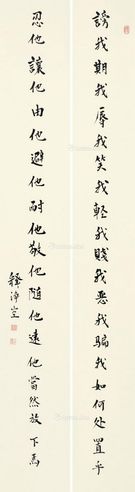 謗我期我辱我笑我輕我賤我惡我騙我如何处置乎
忍他讓他由他避他耐他敬他随他遠他當然放下焉
釋淨空